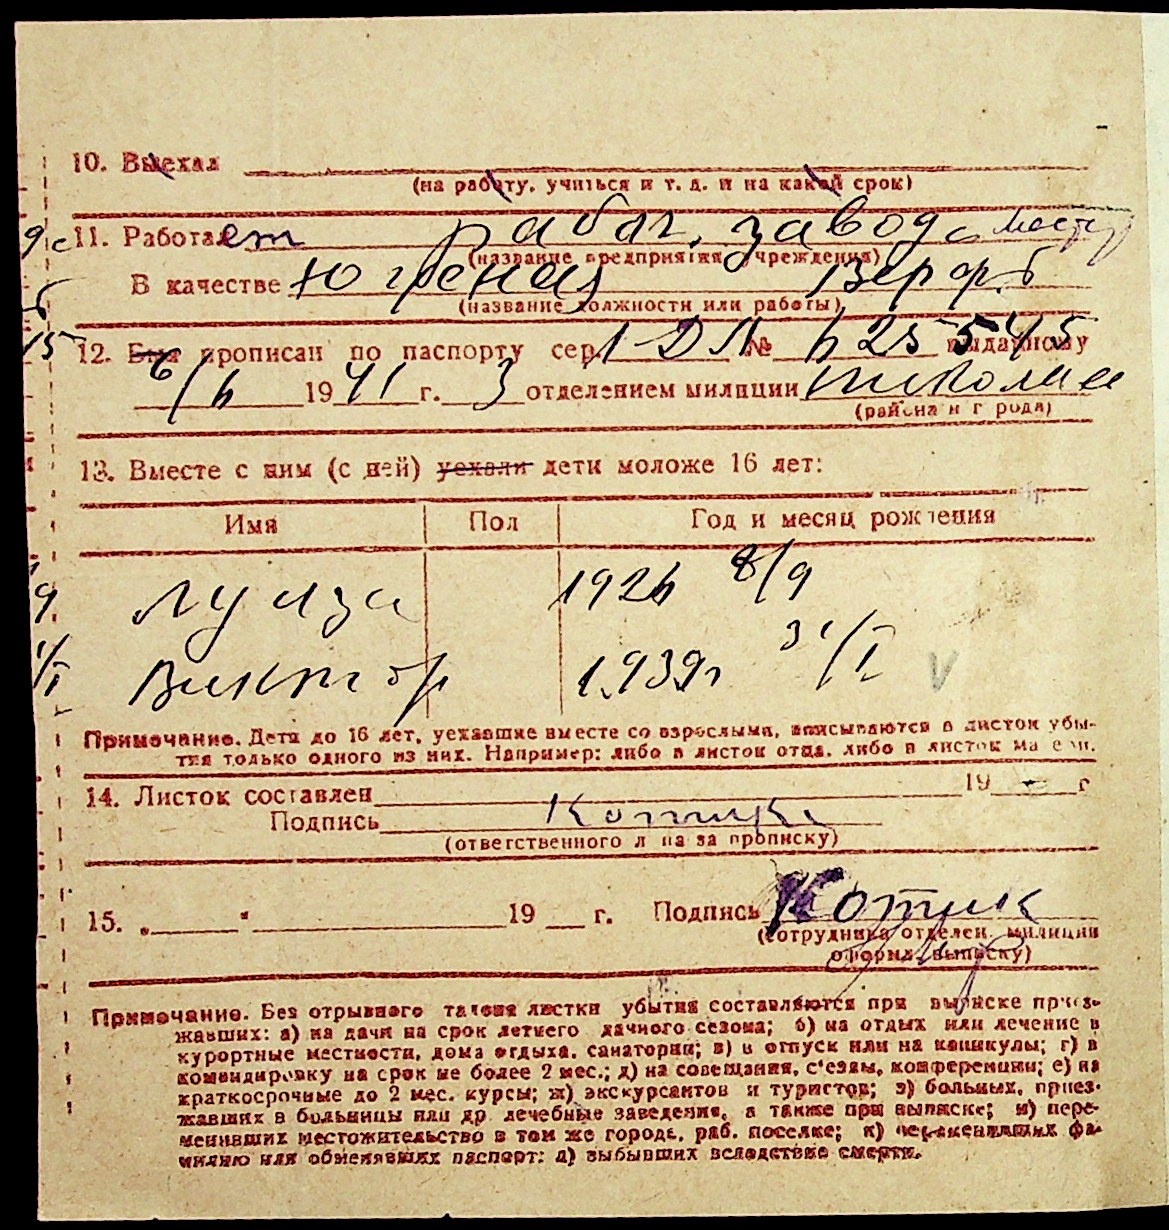 10. Выехал
(на работу, учиться и т. д. и на какой срок)
11. Работает рабоч. завод
(название предприятия учреждения)
В качестве Верф
(название должности или работы)
12. Был прописан по паспорту сер. 1 ДЛ № 625545 выданному
6/6 1941 г. 3 отделением милиции Николаев
(района и города)
13. Вместе с ним (с ней) уехали дети моложе 16 лет:
Имя Пол Год и месяц рождения
Луиза 1926 8/9
Виктор 1939г 31/I V
Примечание. Дети до 16 лет, уехавшие вместе со взрослыми, вписываются в листок убы-
тия только одного из них. Например: либо в листок отца, либо в листок матери.
14. Листок составлен 19 г
Подпись Котик
(ответственного лица за прописку)
15. „ " 19 г. Подпись Котик
(сотрудника отделен. милиции
оформ. выписку)
Примечание. Без отрывного талона листки убытия составляются при выписке приез-
жавших: а) на дачи на срок летнего дачного сезона; б) на отдых или лечение в
курортные местности, дома отдыха, санатории; в) в отпуск или на каникулы; г) в
командировку на срок не более 2 мес.; д) на совещания, с'езды, конференции; е) на
краткосрочные до 2 мес. курсы; ж) экскурсантов и туристов; з) больных, приез-
жавших в больницы или др. лечебные заведения, а также при выписке; и) пере-
менивших местожительство в том же городе, раб. поселке; к) переменивших фа-
милию или обменявших паспорт; л) выбывших вследствие смерти.